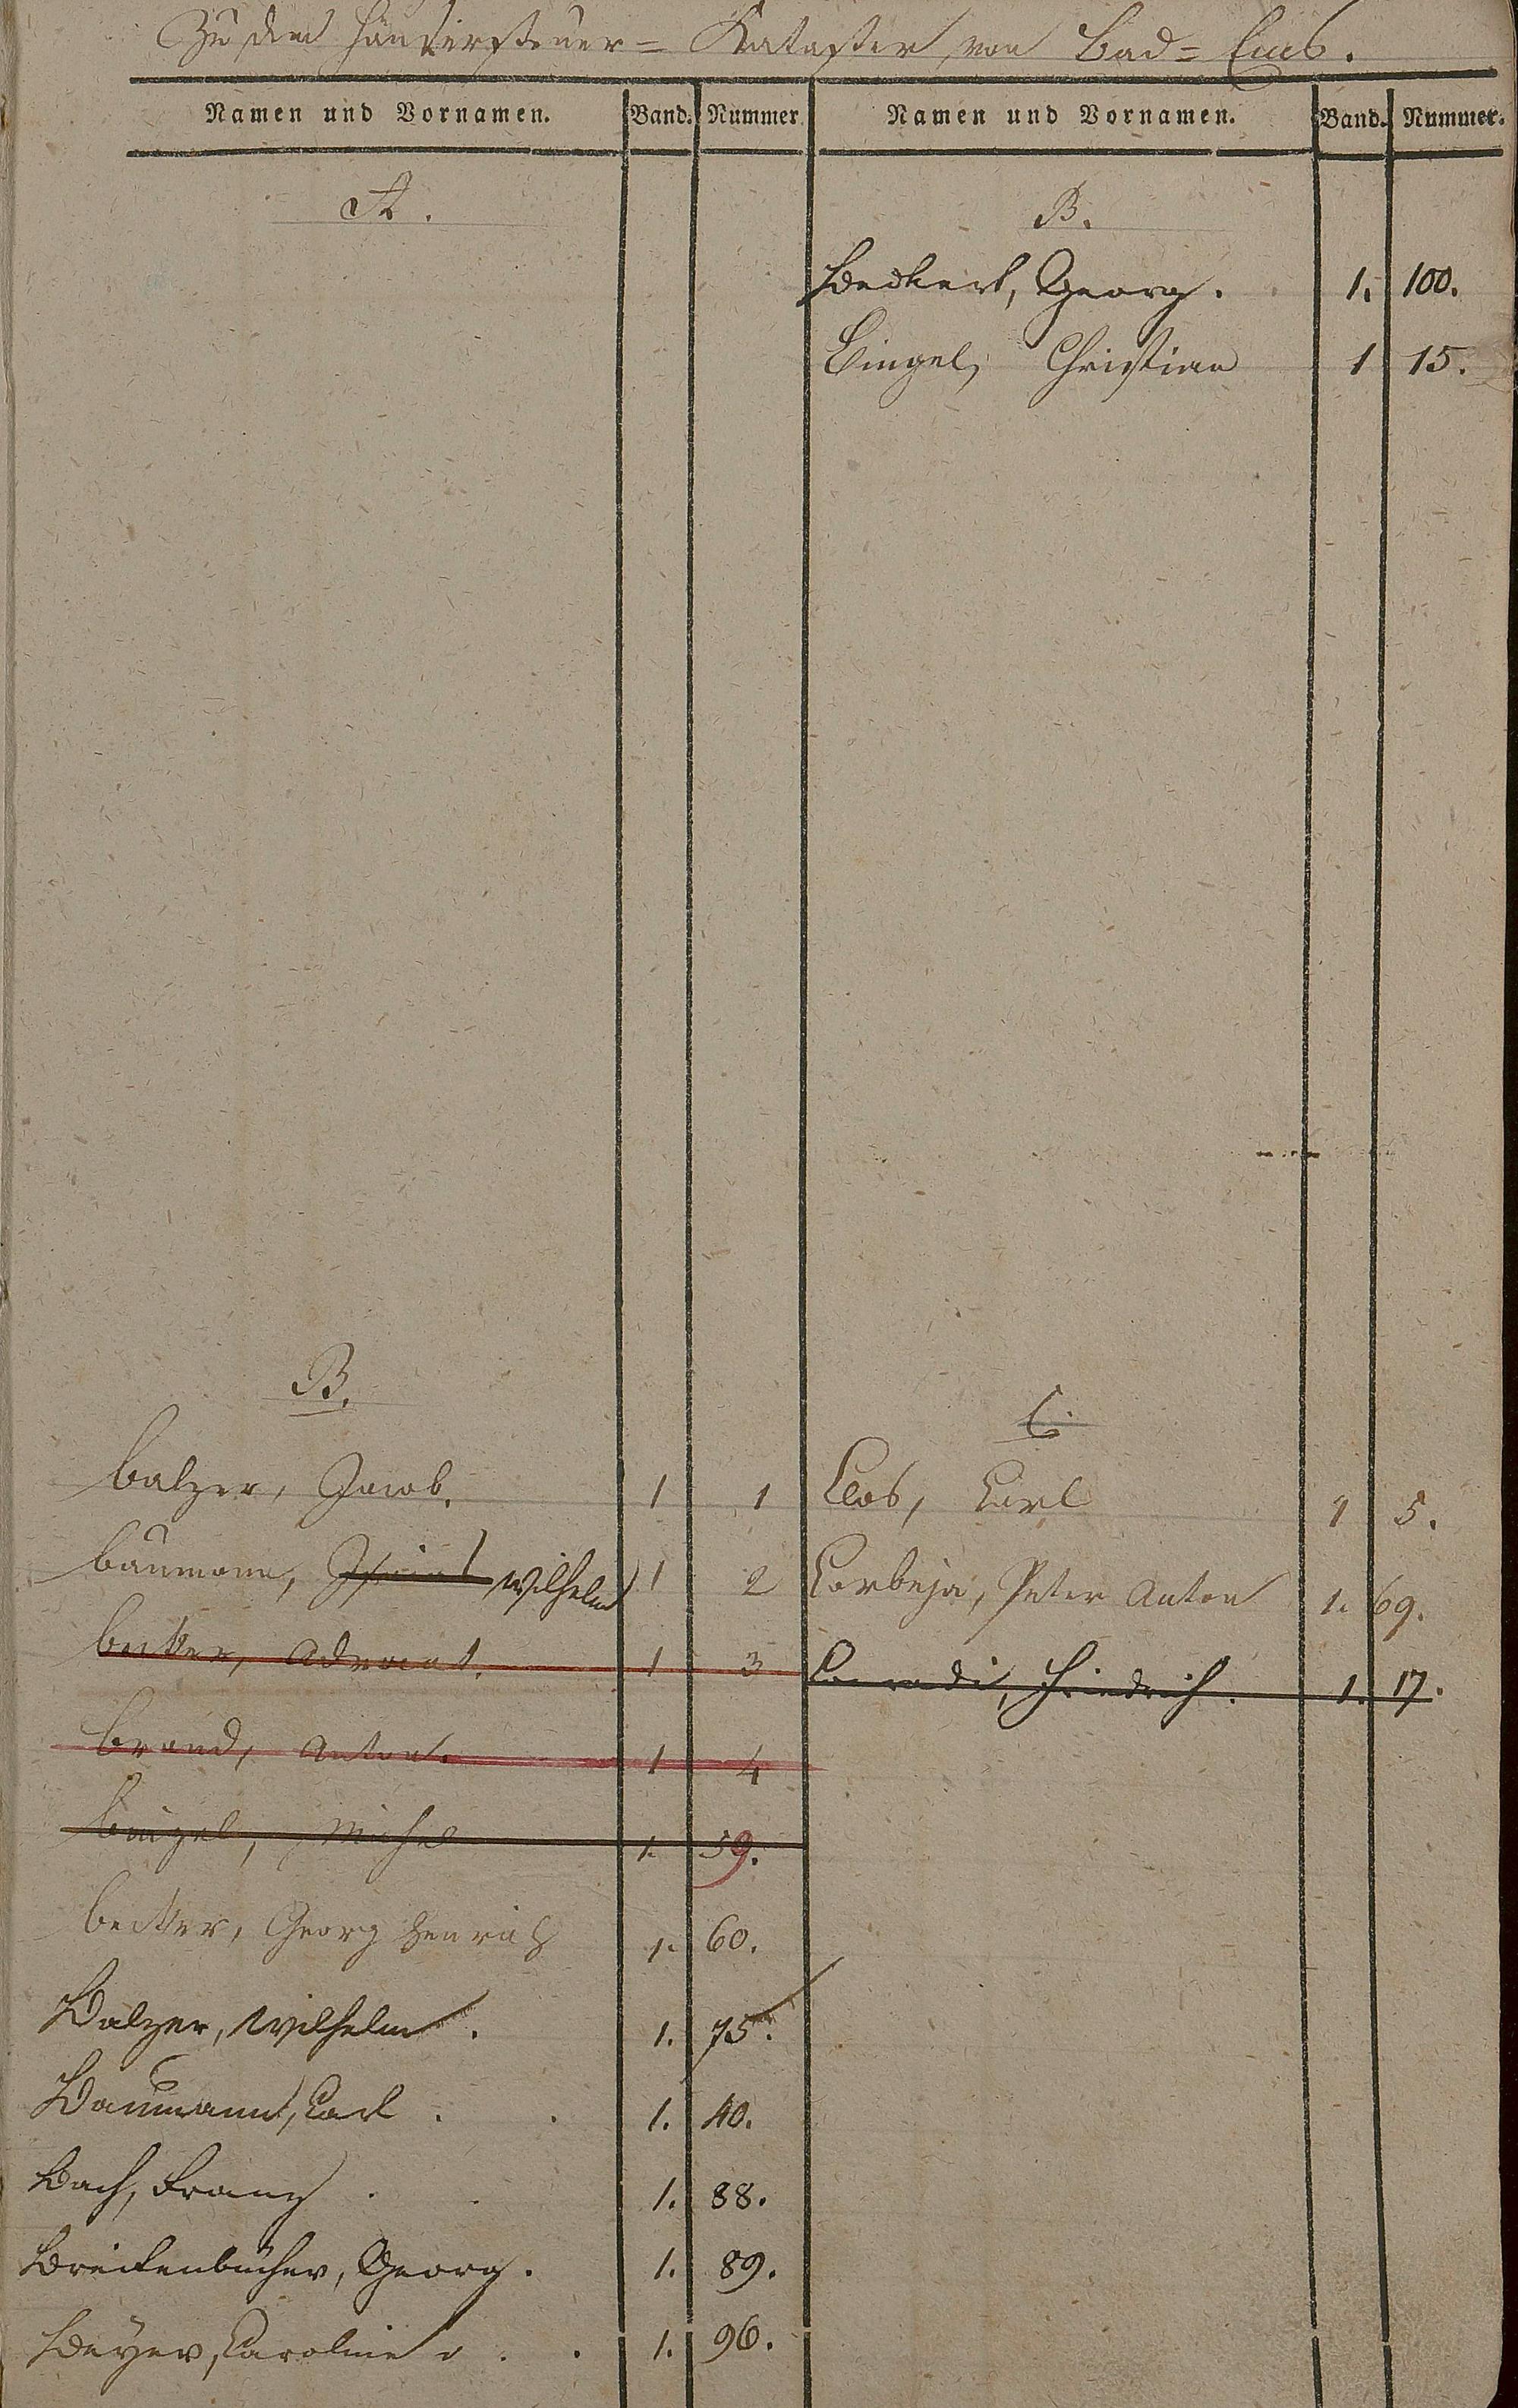 Zu dem Häusersteuer= Kataster von Bad=Ems.
Namen und Vornamen. Band. Nummer.
A.
B.
Balzer, Jacob. 1 1
Baumann, Wilhelm 1 2
Becker, Advocat. 1 3
Brand, Anton. 1 4
Bingel, Michel 1. 59.
Becker, Georg Henrich 1. 60.
Balzer, Wilhelm. 1. 75.
Baumann, Carl. 1. 40.
Bach, Franz 1. 88.
Breitenbücher, Georg. 1. 89.
Beyer, Caroline 1. 96.
Namen und Vornamen. Band. Nummer.
B.
Beckert, Georg. 1. 100.
Bingel, Christian 1 15.
C.
Clos, Carl 1 5.
Corbeja, Peter Anton 1. 69.
Conradi, Friedrich. 1. 17.